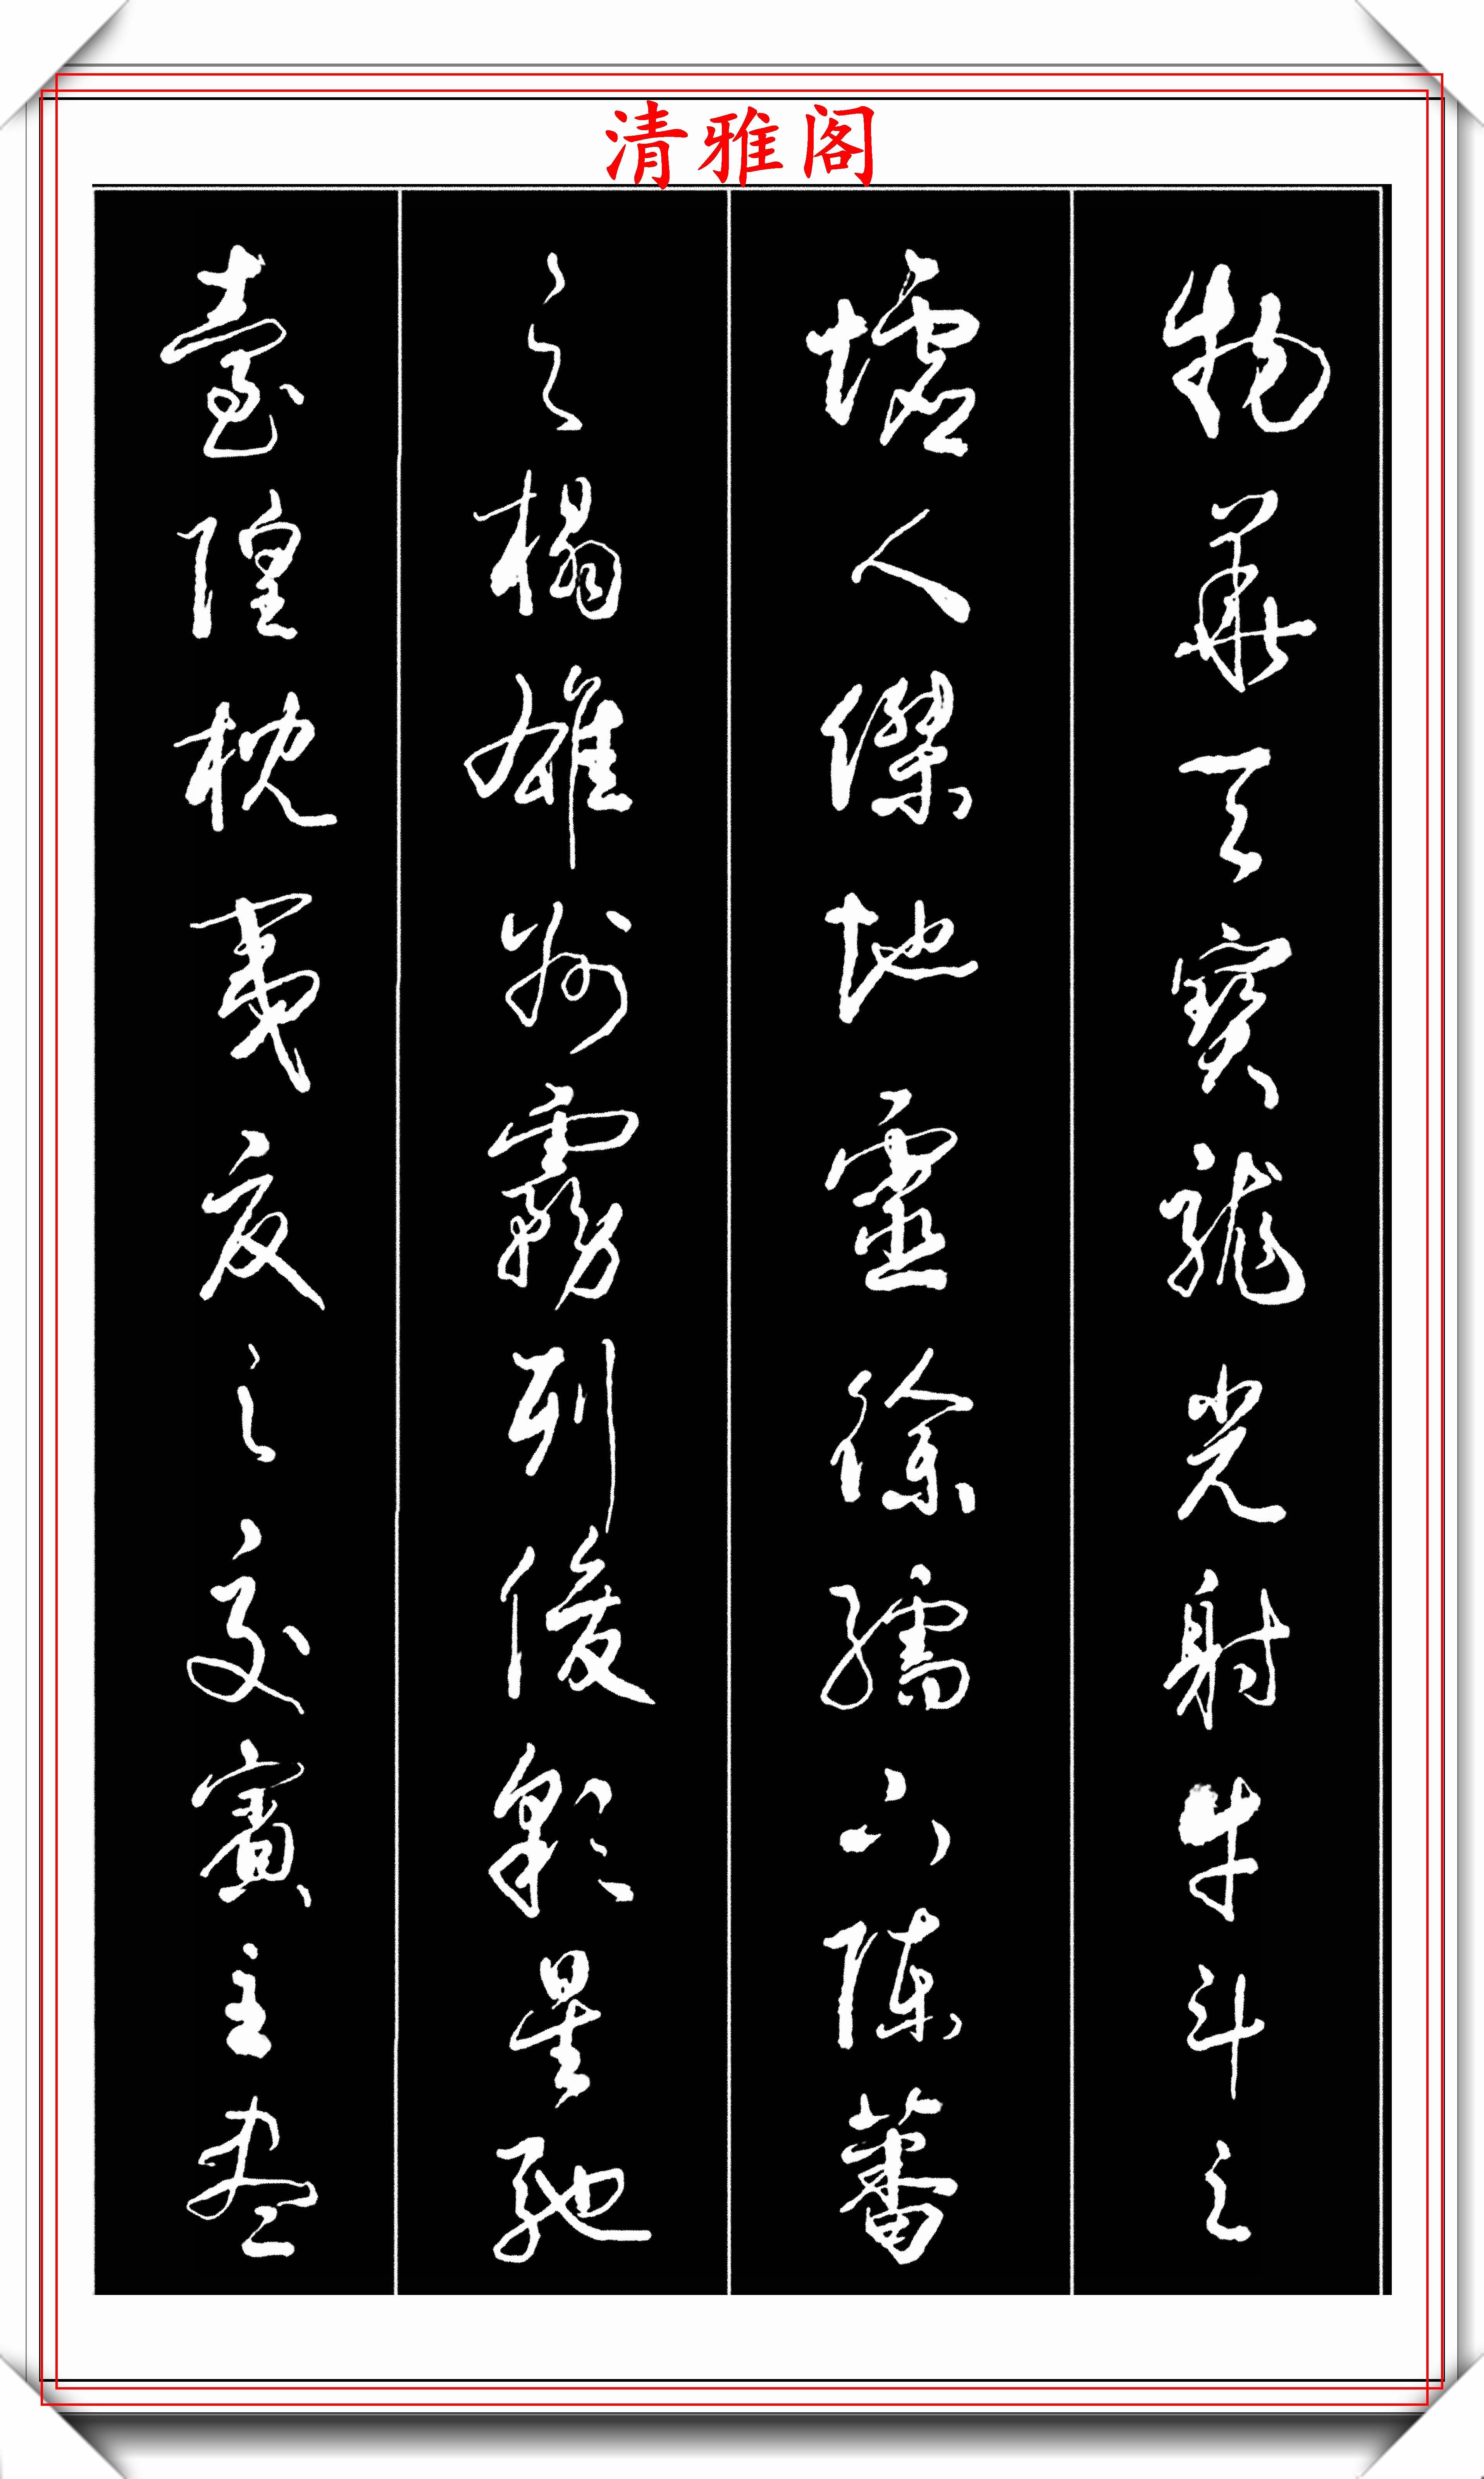 清雅阁
物華天寶龍光射牛斗之
墟人傑地靈徐孺下陳蕃
之榻雄州霧列俊彩星馳
臺隍枕夷夏之交賓主盡